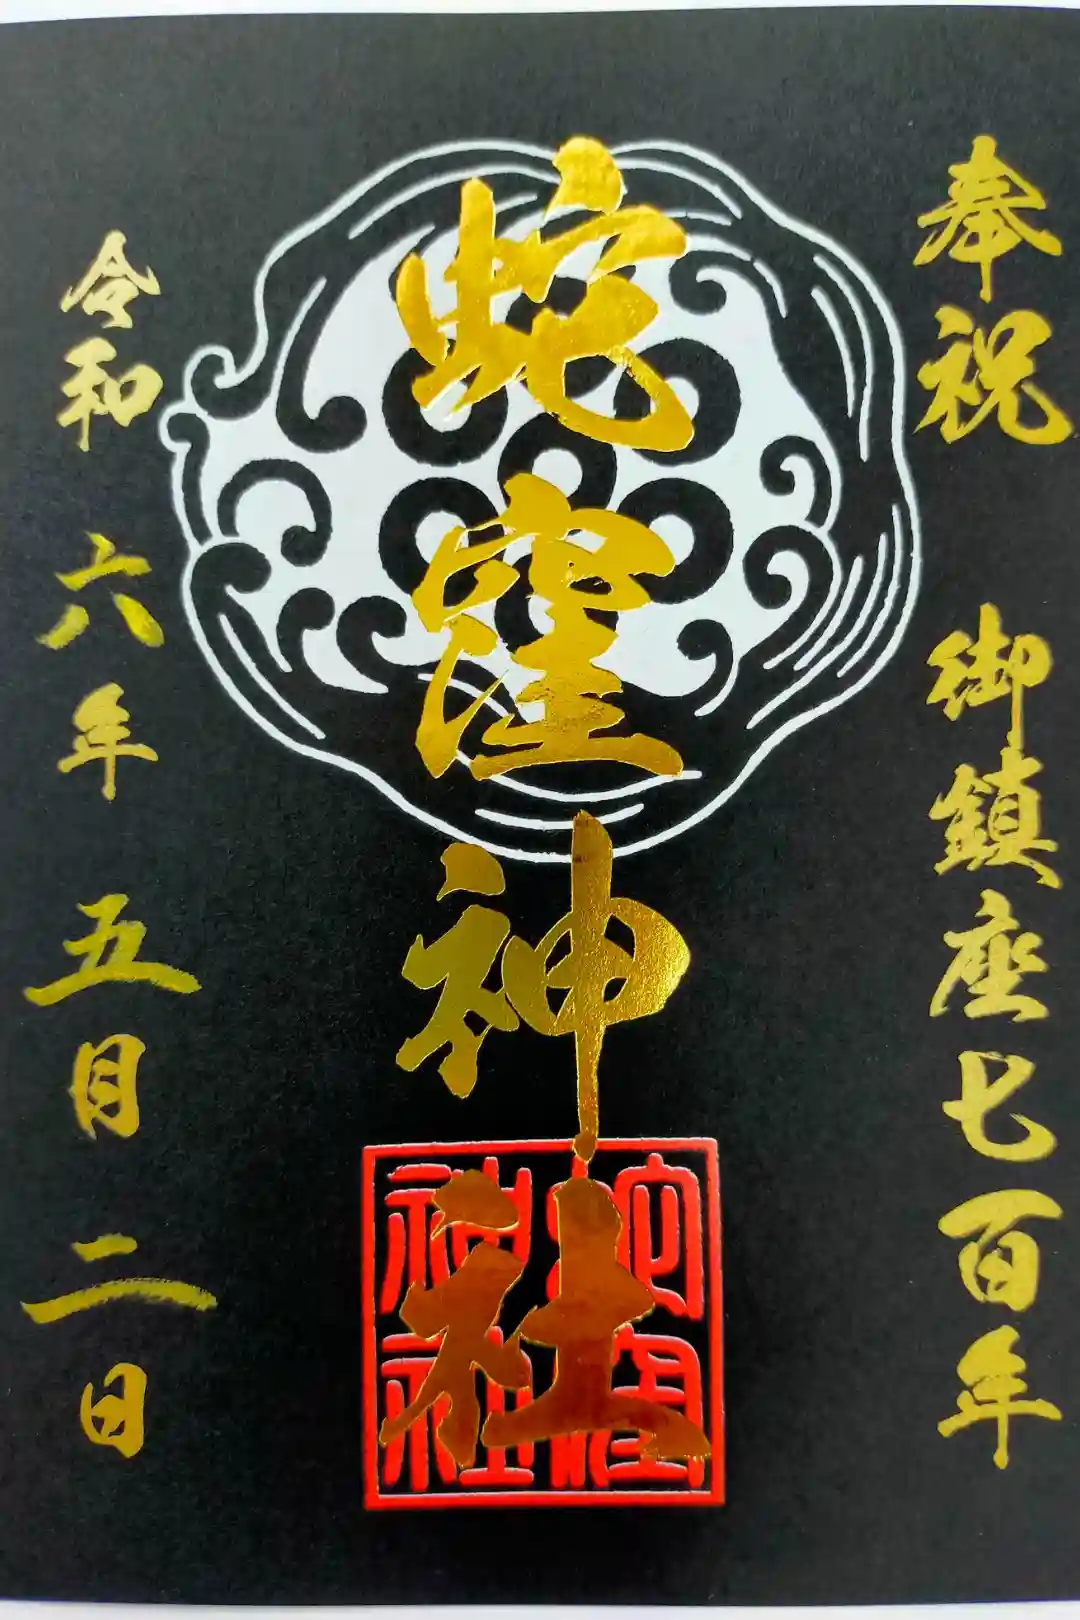 奉祝 御鎮座七百年
蛇窪神社
蛇窪神社
令和六年五月二日